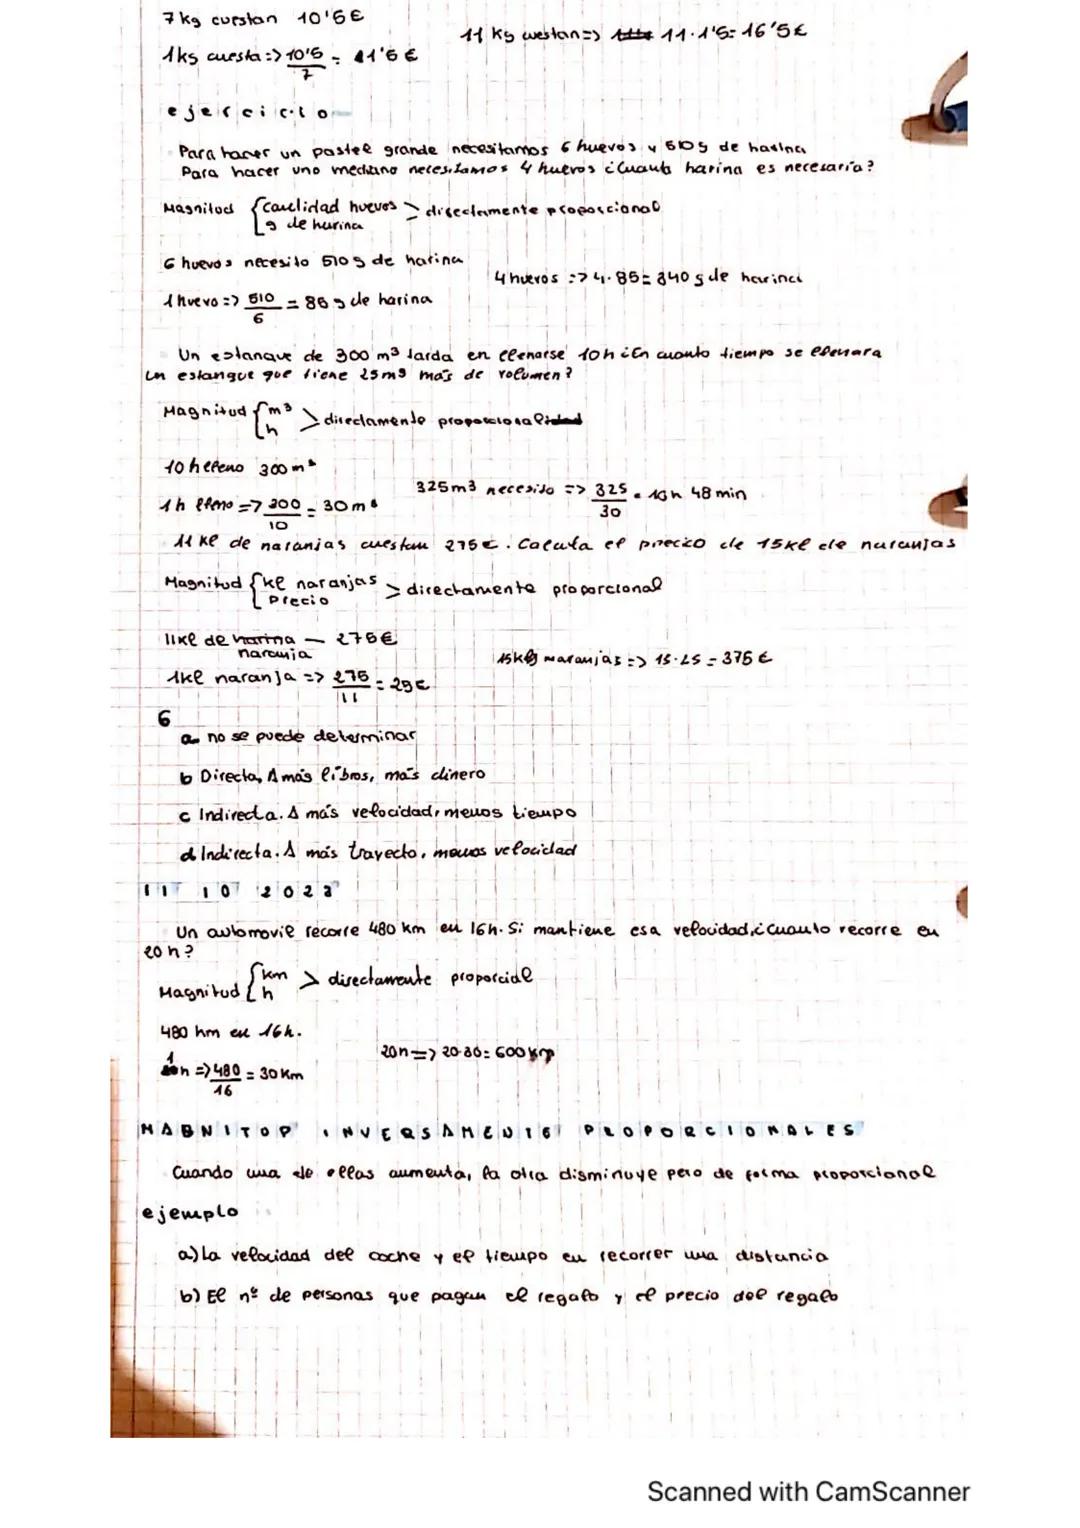 7 kg cuestan 10'5€
11 kg cuestan=> 11·1'5=16'5€
1kg cuesta=> 10'5/7 = 1'5 €
ejercicio
Para hacer un pastel grande necesitamos 6 huevos y 510g de harina
Para hacer uno mediano necesitamos 4 huevos ¿Cuanta harina es necesaria?
Magnitud {cantidad huevos > directamente proporcional
g de harina
6 huevos necesito 510g de harina
4 huevos => 4·85= 340 g de harina
1 huevo => 510/6 = 85 g de harina
Un estanque de 300 m³ tarda en llenarse 10h ¿En cuanto tiempo se llenara
un estanque que tiene 25m³ más de volumen?
Magnitud {m³ > directamente proporcional
h
10 h lleno 300m³
325m3 necesito => 325/30 = 10h 48 min
1h lleno => 300/10 = 30m³
11 kl de naranjas cuestan 275€. Calcula el precio de 15kl de naranjas
Magnitud {kl naranjas > directamente proporcional
Precio
11kl de naranja — 275€
15kg naranjas => 15·25 = 375 €
1kl naranja => 275/11 = 25€
6
a no se puede determinar
b Directa, A más libros, más dinero
c Indirecta. A más velocidad, menos tiempo
d Indirecta. A más trayecto, menos velocidad
11 10 2022
Un automovil recorre 480 km en 16h. Si mantiene esa velocidad, ¿cuanto recorre en
20 h?
Magnitud {km > directamente proporcial
h
480 hm en 16h.
20h => 20·30= 600 km
1h => 480/16 = 30 Km
MAGNITOP INVERSAMENTE PROPORCIONALES
Cuando una de ellas aumenta, la otra disminuye pero de forma proporcional
ejemplo
a) La velocidad del coche y el tiempo en recorrer una distancia
b) El nº de personas que pagan el regalo y el precio del regalo
Scanned with CamScanner